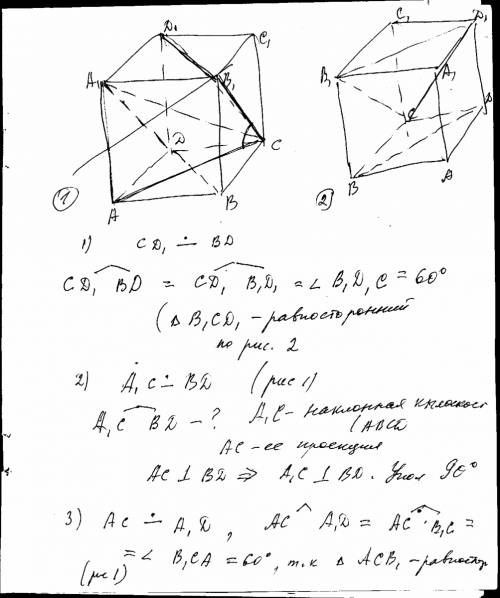 D₁ C₁
A₁ B₁
D C
A B
1
C₁ D₁
B₁ A₁
C D
B A
2
1) CD₁ ∸ BD
CD₁ BD = CD₁ B₁D₁ = ∠ B₁D₁C = 60°
(Δ B₁CD₁ - равносторонний
по рис. 2
2) A₁C ∸ BD (рис 1)
A₁C BD - ? A₁C - наклонная к плоскост
(ABCD
AC - ее проекция
AC ⊥ BD ⇒ A₁C ⊥ BD. Угол 90°
3) AC ∸ A₁D, AC ^ A₁D = AC B₁C =
= ∠ B₁CA = 60°, т.к Δ ACB₁ - равностор
(рис 1)